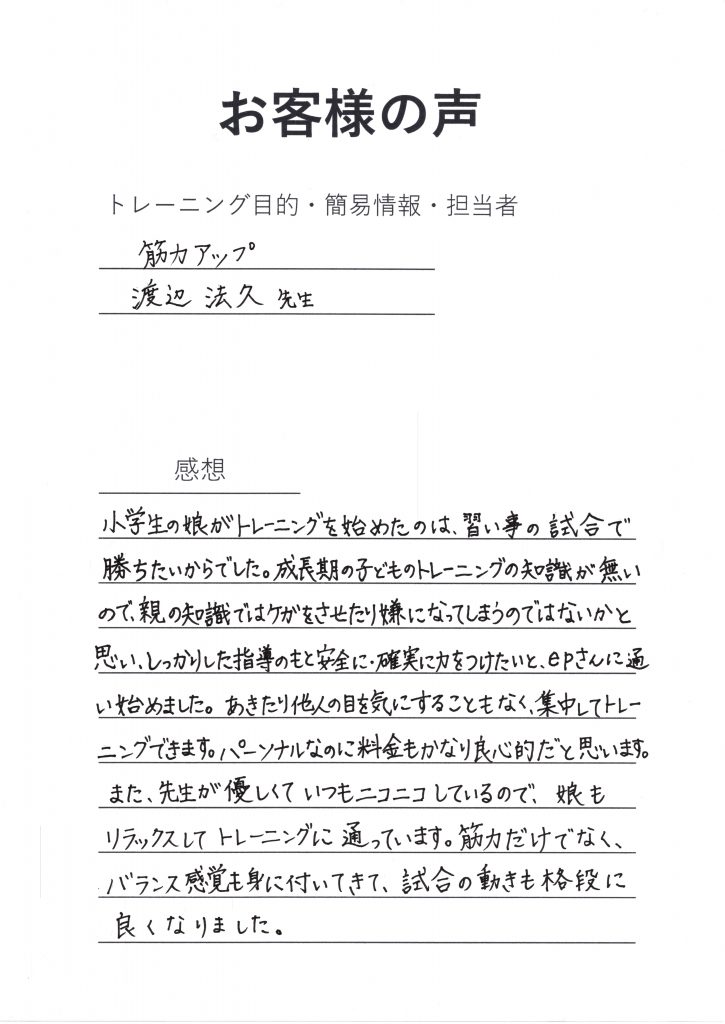 お客様の声
トレーニング目的・簡易情報・担当者
筋力アップ
渡辺 法久 先生
感想
小学生の娘がトレーニングを始めたのは、習い事の試合で
勝ちたいからでした。成長期の子どものトレーニングの知識が無い
ので、親の知識ではケガをさせたり嫌になってしまうのではないかと
思い、しっかりした指導のもと安全に・確実に力をつけたいと、epさんに通
い始めました。あきたり他人の目を気にすることもなく、集中してトレー
ニングできます。パーソナルなのに料金もかなり良心的だと思います。
また、先生が優しくていつもニコニコしているので、娘も
リラックスしてトレーニングに通っています。筋力だけでなく、
バランス感覚も身に付いてきて、試合の動きも格段に
良くなりました。